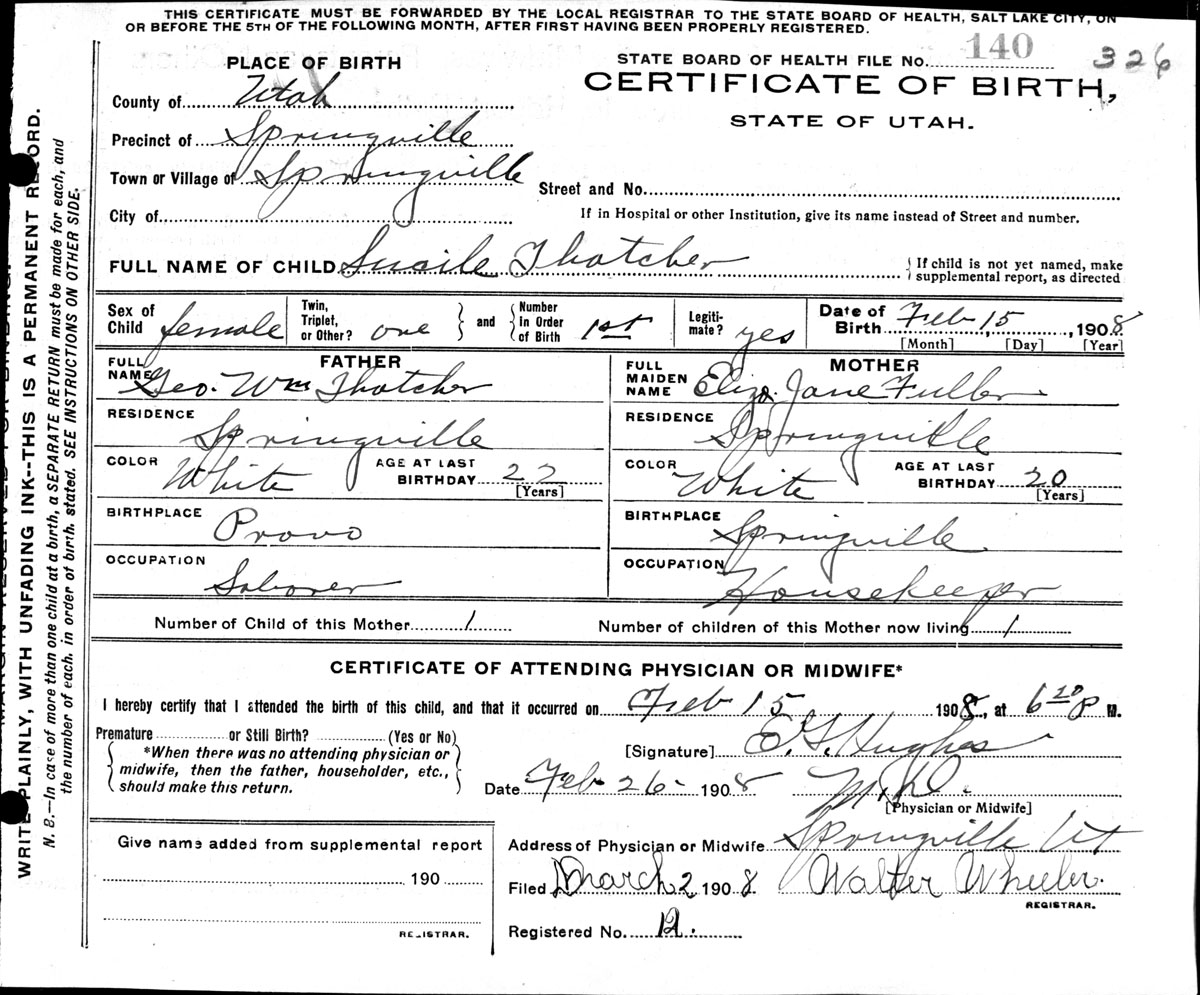 THIS CERTIFICATE MUST BE FORWARDED BY THE LOCAL REGISTRAR TO THE STATE BOARD OF HEALTH, SALT LAKE CITY, ON
OR BEFORE THE 5TH OF THE FOLLOWING MONTH, AFTER FIRST HAVING BEEN PROPERLY REGISTERED.
STATE BOARD OF HEALTH FILE No. 140 326
CERTIFICATE OF BIRTH,
STATE OF UTAH.
PLACE OF BIRTH
County of Utah
Precinct of Springville
Town or Village of Springville
Street and No.
City of
If in Hospital or other Institution, give its name instead of Street and number.
FULL NAME OF CHILD Lucile Thatcher
{ If child is not yet named, make
supplemental report, as directed
Sex of Child female
Twin, Triplet, or Other? one } and { Number In Order of Birth 1st
Legiti-mate? yes
Date of Birth Feb 15, 1908
[Month] [Day] [Year]
FATHER
FULL NAME Geo. Wm Thatcher
RESIDENCE Springville
COLOR White AGE AT LAST BIRTHDAY 22 [Years]
BIRTHPLACE Provo
OCCUPATION Laborer
MOTHER
FULL MAIDEN NAME Eliza Jane Fuller
RESIDENCE Springville
COLOR White AGE AT LAST BIRTHDAY 20 [Years]
BIRTHPLACE Springville
OCCUPATION Housekeeper
Number of Child of this Mother 1
Number of children of this Mother now living 1
CERTIFICATE OF ATTENDING PHYSICIAN OR MIDWIFE*
I hereby certify that I attended the birth of this child, and that it occurred on Feb 15 1908, at 6 20 P M.
Premature or Still Birth? (Yes or No)
{ *When there was no attending physician or
midwife, then the father, householder, etc.,
should make this return. }
[Signature] E. G. Hughes
Date Feb 26 1908 M.D.
[Physician or Midwife]
Address of Physician or Midwife Springville Ut
Filed March 2 1908 Walter Wheeler.
REGISTRAR.
Registered No. 12.
Give name added from supplemental report
190
REGISTRAR.
WRITE PLAINLY, WITH UNFADING INK--THIS IS A PERMANENT RECORD.
N. B.—In case of more than one child at a birth, a SEPARATE RETURN must be made for each, and
the number of each, in order of birth, stated. SEE INSTRUCTIONS ON OTHER SIDE.